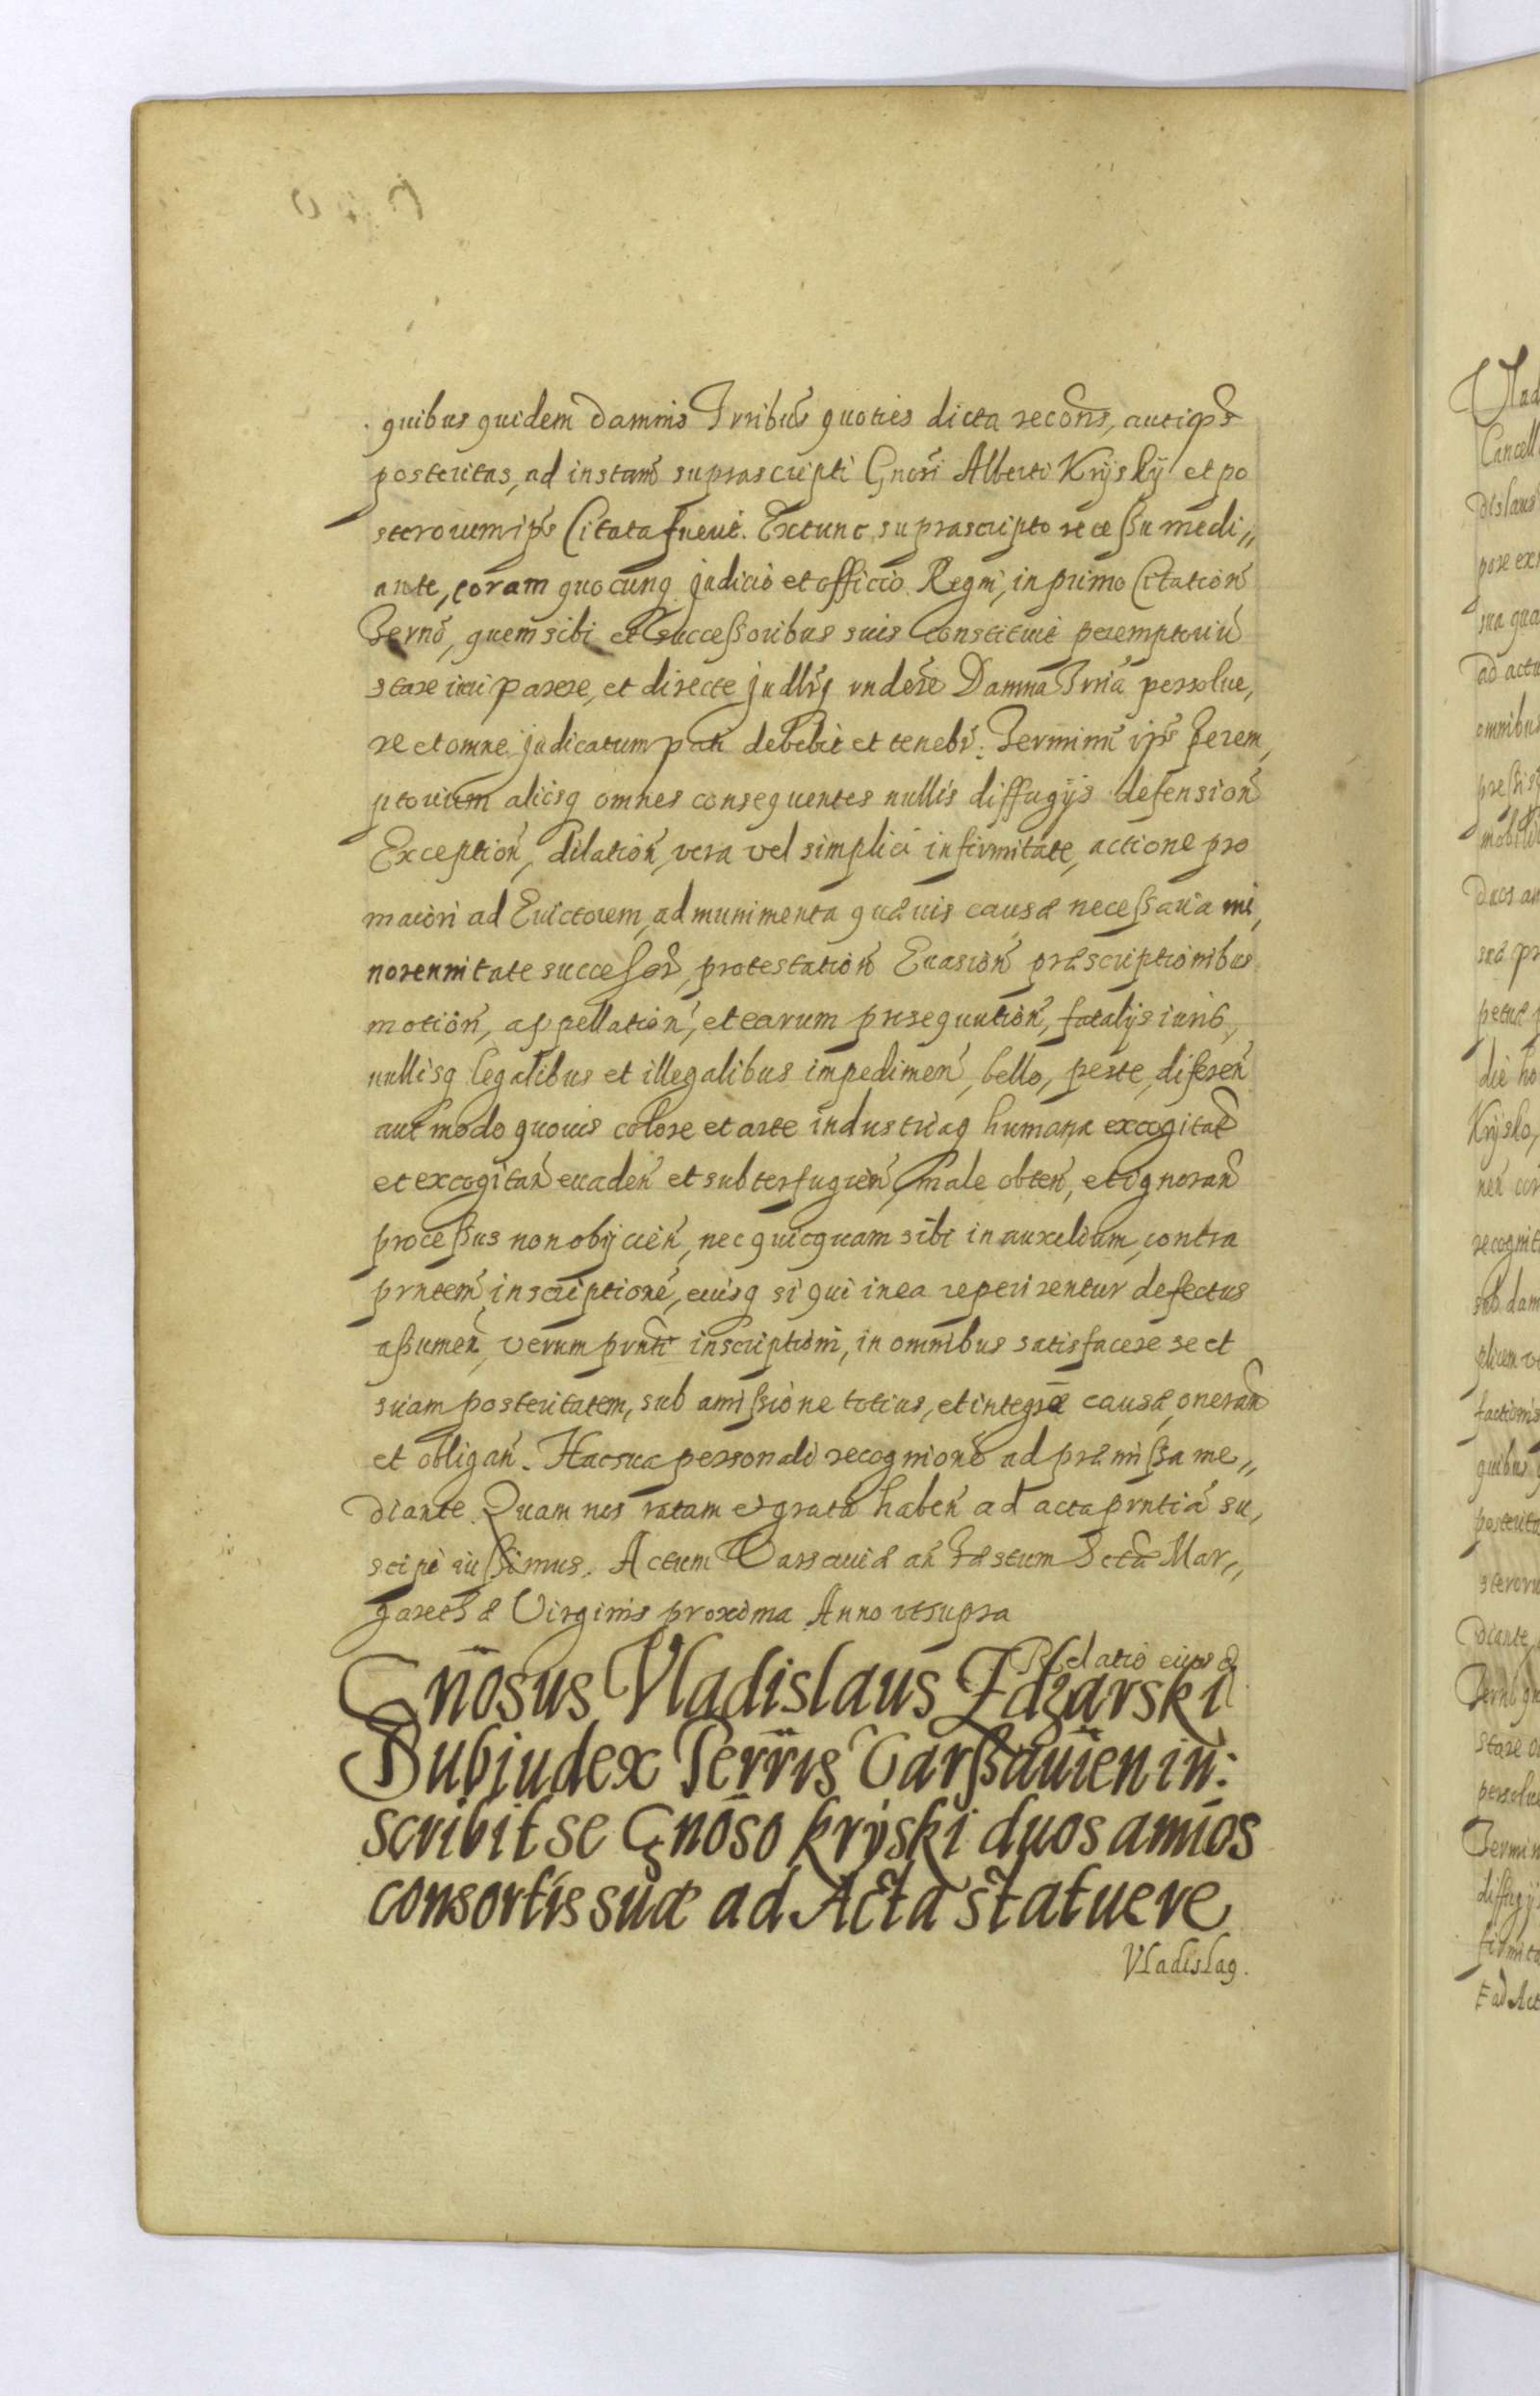 quibus quidem damnis Trribus quoties dicta recōns, aut ips
posteritas, ad instan̄ suprascripti Gnosi Alberti Krÿskÿ et po
sterorum ips Citata fuerit. Extunc suprascripto recessu medi„
ante, coram quocunq judicio et officio Regni, in primo Citation̄
Termō, quem sibi et successoribus suis constituit peremptoriū
stare iuri parere, et directe jud̄r̄q rndere Damna Trria persolue,
re et omne judicatum pati debebit et tenebr. Terminū ips Perem,
ptorium aliosq omnes consequentes nullis diffugijs defension̄
Exception̄, dilation̄, vera vel simplici infirmitate, actione pro
maiori ad Euictorem, ad munimenta quæuis causæ necessaria mi,
norennitate succesor, protestation̄ Euasion̄ præscriptionibus
motion̄, appellation̄, et earum prosequution̄, fatalijs iuris,
nullisq legalibus et illegalibus impedimen̄, bello, peste, diferen̄
aut modo quouis colore et arte industriaq humana excogitat
et excogitan̄ euaden̄ et subterfugien̄, male obten̄, et ignoran̄
processus non obijcien̄, nec quicquam sibi in auxelium, contra
prntem inscriptionē, eiusq si qui in ea reperirentur defectus
assumen̄, verum prnti inscriptioni, in omnibus satisfacere se et
suam posteritatem, sub amissione totius, et integræ causæ, oneran̄
et obligan̄. Hac sua personali recognionē ad præmissa me„
diante. Quam nos ratam et gratā haben̄ ad acta prntiā su,
scipi iussimus. Actum Varsauiæ an̄ Festum Sctæ Mar„
garethæ Virginis proxima Anno ut supra
Relatio eiusd
Gnōsus Vladislaus Zdzarski
Subiudex Terrīs Varssauīen in:
scribit se Gnōso krÿski duos amīos
consortis suæ ad Acta statuere
Vladislaq.